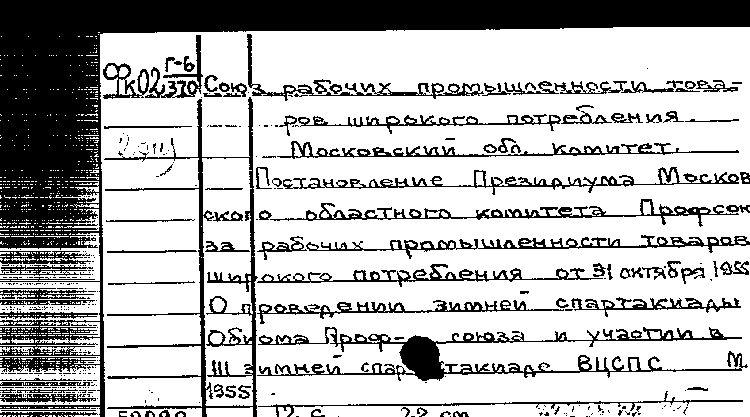 ФК02 Г-6/370 Союз рабочих промышленности това-
ров широкого потребления.
Московский обл. комитет.
Постановление Президиума Москов
ского областного комитета Профсою
за рабочих промышленности товаров
широкого потребления от 31 октября 1955
О проведении зимней спартакиады
Обкома Проф- союза и участии в
III зимней спартакиаде ВЦСПС М.
1955
12 с. 22 см